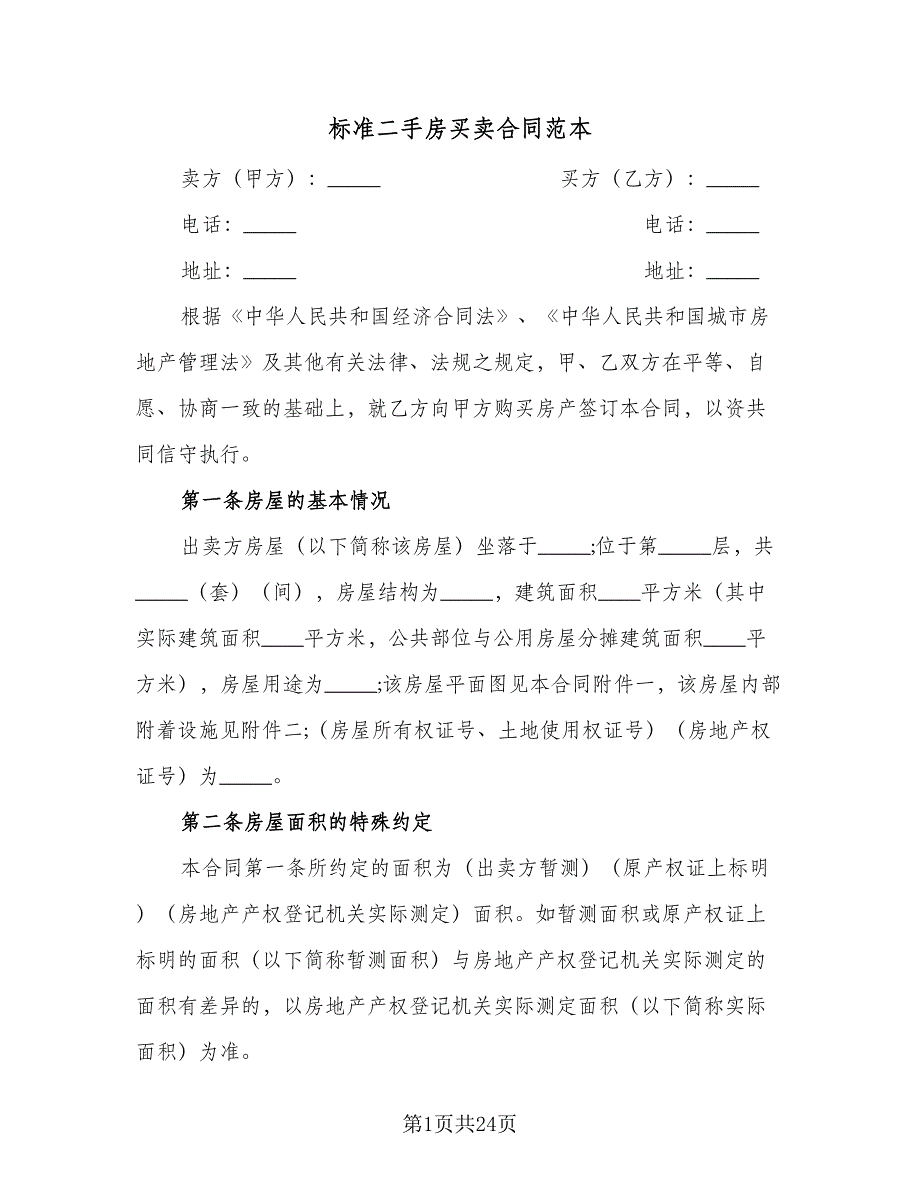 标准二手房买卖合同范本
卖方（甲方）：_____ 买方（乙方）：_____
电话：_____ 电话：_____
地址：_____ 地址：_____
根据《中华人民共和国经济合同法》、《中华人民共和国城市房
地产管理法》及其他有关法律、法规之规定，甲、乙双方在平等、自
愿、协商一致的基础上，就乙方向甲方购买房产签订本合同，以资共
同信守执行。
第一条房屋的基本情况
出卖方房屋（以下简称该房屋）坐落于_____;位于第_____层，共
_____（套）（间），房屋结构为_____，建筑面积____平方米（其中
实际建筑面积____平方米，公共部位与公用房屋分摊建筑面积____平
方米），房屋用途为_____;该房屋平面图见本合同附件一，该房屋内部
附着设施见附件二;（房屋所有权证号、土地使用权证号）（房地产权
证号）为_____。
第二条房屋面积的特殊约定
本合同第一条所约定的面积为（出卖方暂测）（原产权证上标明
）（房地产产权登记机关实际测定）面积。如暂测面积或原产权证上
标明的面积（以下简称暂测面积）与房地产产权登记机关实际测定的
面积有差异的，以房地产产权登记机关实际测定面积（以下简称实际
面积）为准。
第1页共24页